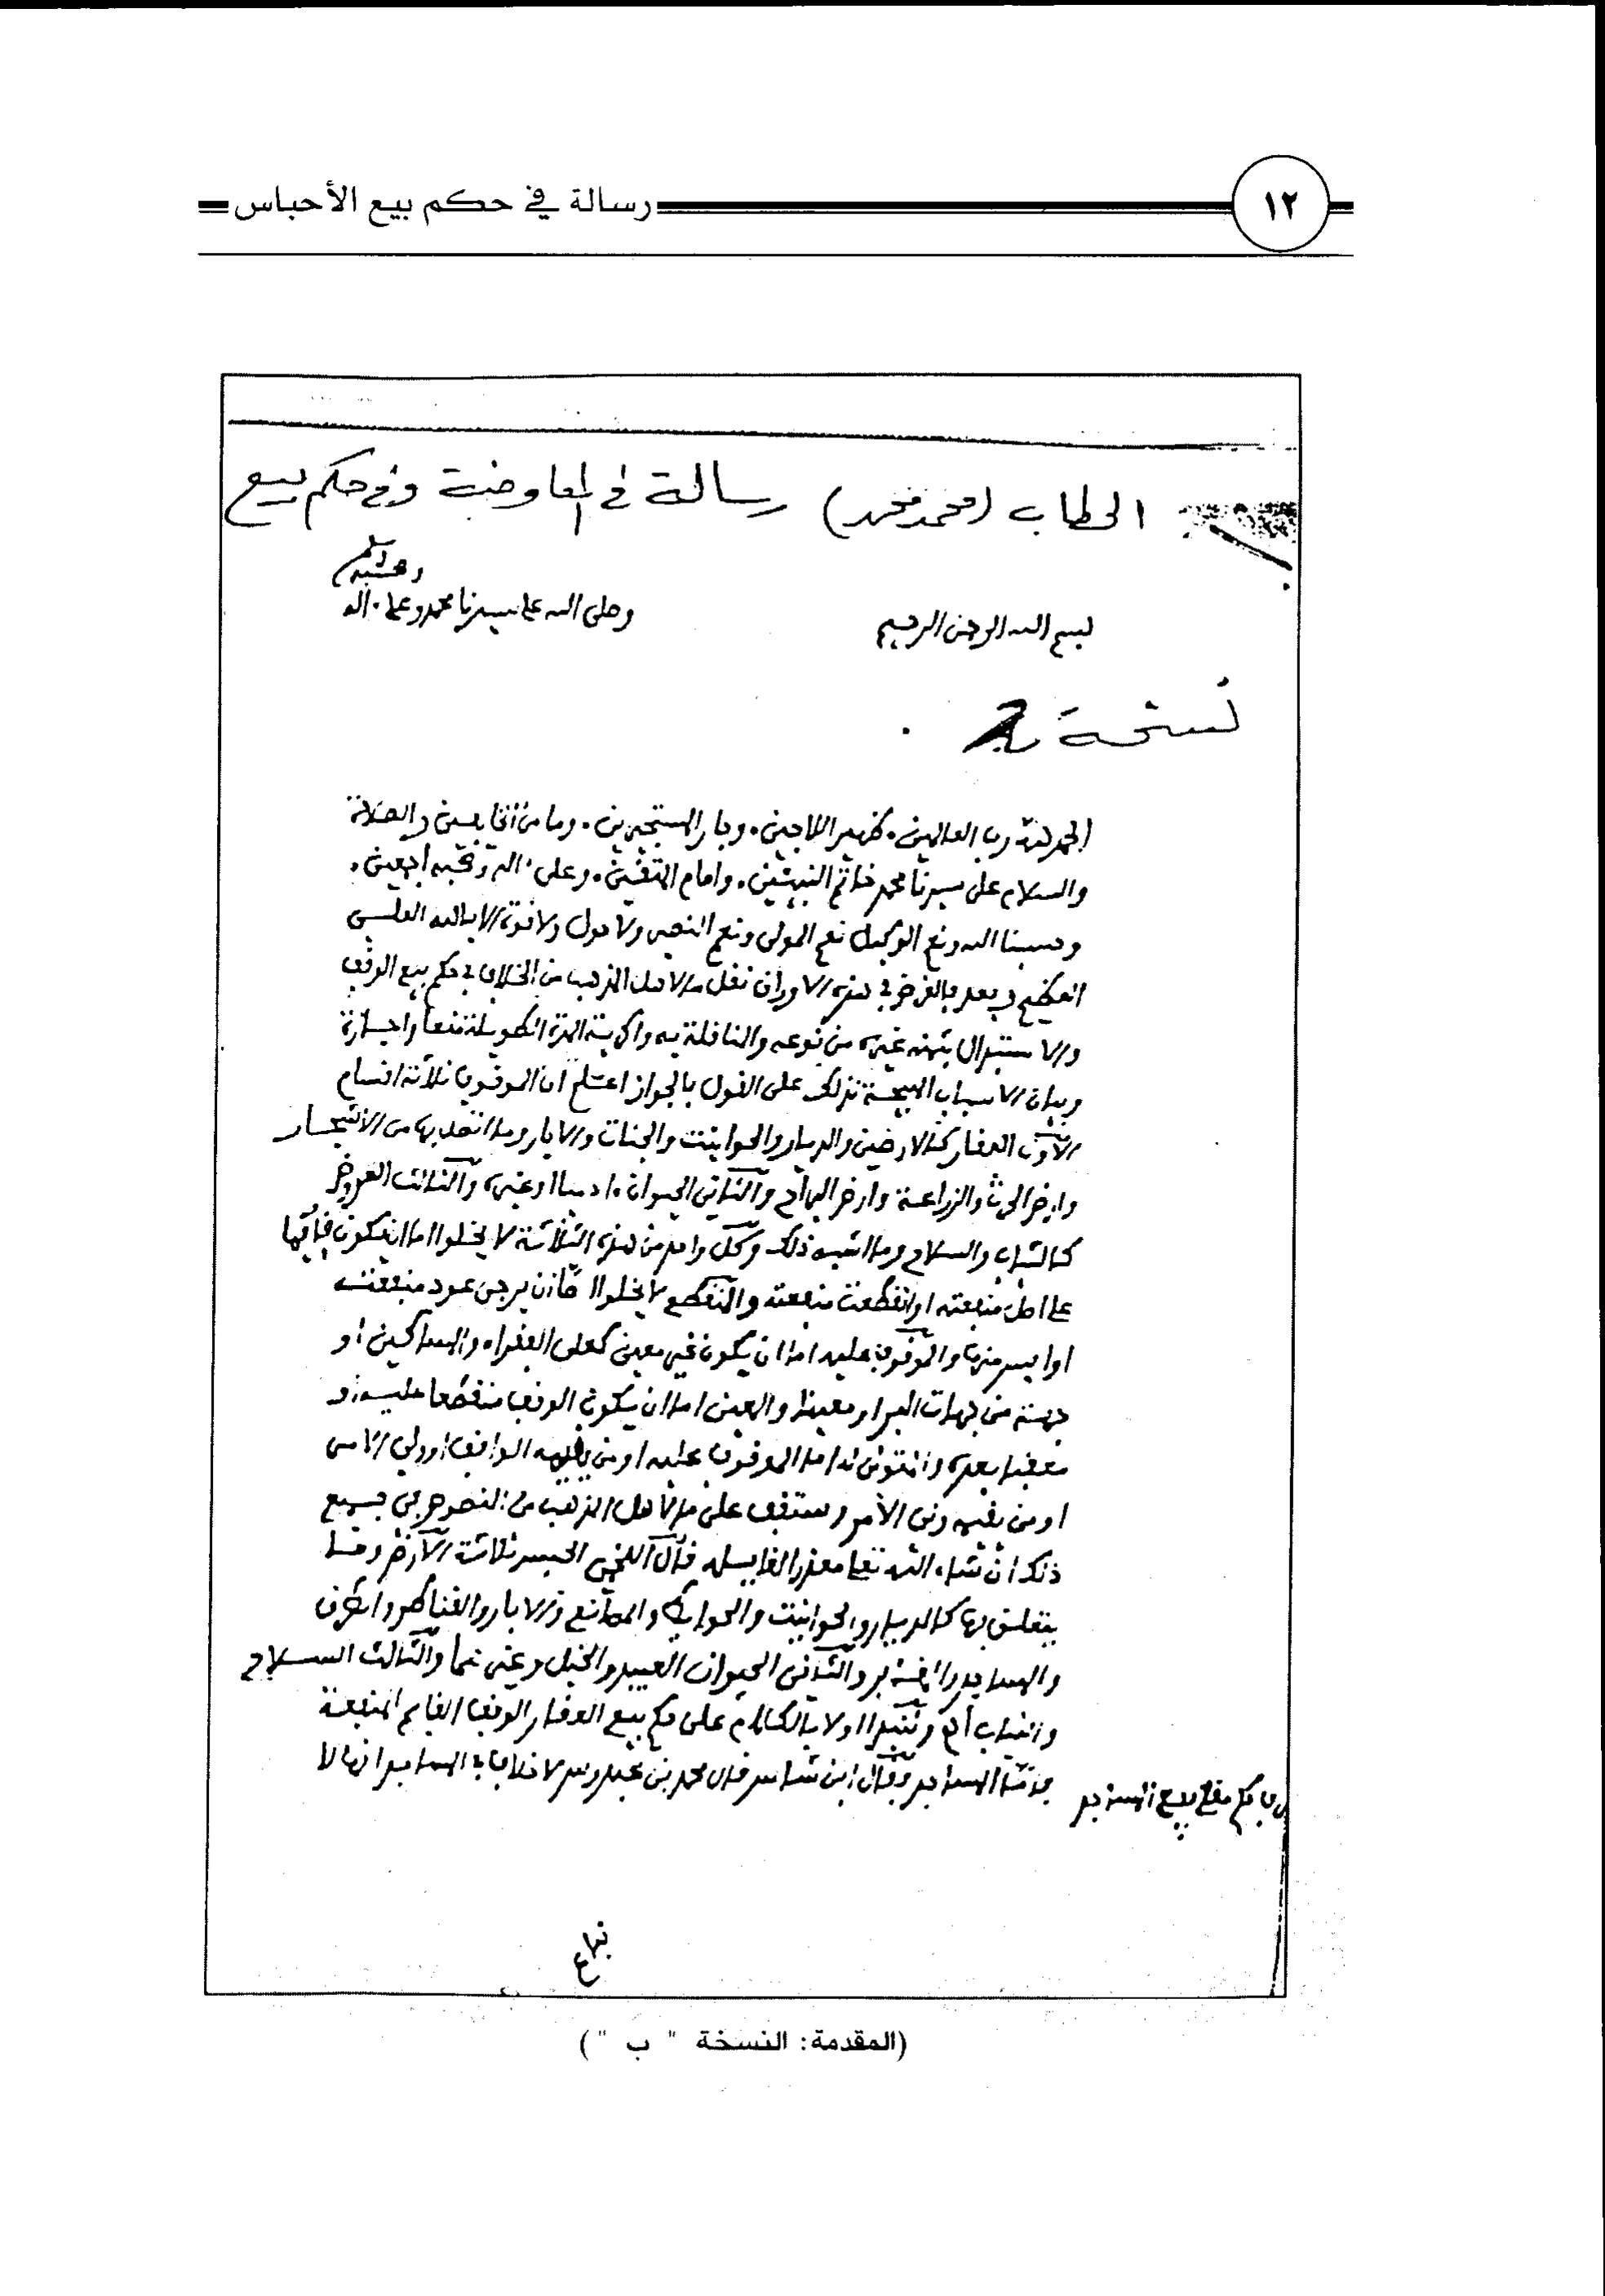 ١٢
رسالة في حكم بيع الأحباس
الحطاب (محمد بن محمد) رسالة في المعاوضة وفي حكم بيع
بسم الله الرحمن الرحيم
وصلى الله على سيدنا محمد وعلى اله
وصحبه وسلم
نسخة
الحمد لله رب العالمين. ظهير اللاجين. وجار المستجيرين. ومامن الخايفين والصلاة
والسلام على سيدنا محمد خاتم النبيئين. وامام المتقين. وعلى اله وصحبه اجمعين.
وحسبنا الله ونعم الوكيل نعم المولى ونعم النصير ولا حول ولا قوة الا بالله العلي
العظيم وبعد فالغرض في هذه الاوراق نقل ما لاهل المذهب من الخلاف في حكم بيع الوقف
والاستبدال بثمنه غيره من نوعه والمناقلة به واكرية المدة الطويلة منعا واجازة
وبيان الاسباب المبيحة لذلك على القول بالجواز اعلم ان الموقوف ثلاثة اقسام
الاول العقار كالارضين والديار والحوانيت والجنات والابار وما اتصل بها من الاشجار
وارض الحرث والزراعة وارض البراح والثاني الحيوان ادميا او غيره والثالث العروض
كالثياب والسلاح وما اشبه ذلك وكل واحد من هذه الثلاثة لا يخلوا اما ان يكون قايما
على اصل منفعته او انقطعت منفعته والمنقطع لا يخلوا اما ان يرجى عود منفعته
او ايس منها والموقوف عليه اما ان يكون غير معين كعلى الفقراء والمساكين او
جهة من جهات البر او معينا والمعين اما ان يكون الوقف منقطعا عليه او
معقبا بعده والمتولي له اما الموقوف عليه او من يقيمه الواقف او ولي الامر
او من يقيمه ولي الأمر وستقف على ما لاهل المذهب من النصوص في جميع
ذلك ان شاء الله تعا معزوا لقايله قال اللخمي الحبس ثلاثة الارض وما
يتعلق بها كالديار والحوانيت والحوايط والمصانع والابار والقناطر والطرق
والمساجد والمقابر والثاني الحيوان العبيد والخيل وغيرهما والثالث السلاح
والثياب اه ونبدا اولا بالكلام على حكم بيع العقار الوقف القايم المنفعة
المساجد وقال ابن شاس قال محمد بن عبدوس لا خلاف في المساجد انها لا
حكم بيع المساجد
تباع
(المقدمة: النسخة " ب ")